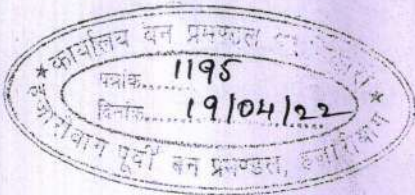 ★ कार्यालय वन प्रमण्डल
पत्रांक.......1195
दिनांक.......19/04/22
हजारीबाग पूर्वी वन प्रमण्डल, हजारीबाग ★